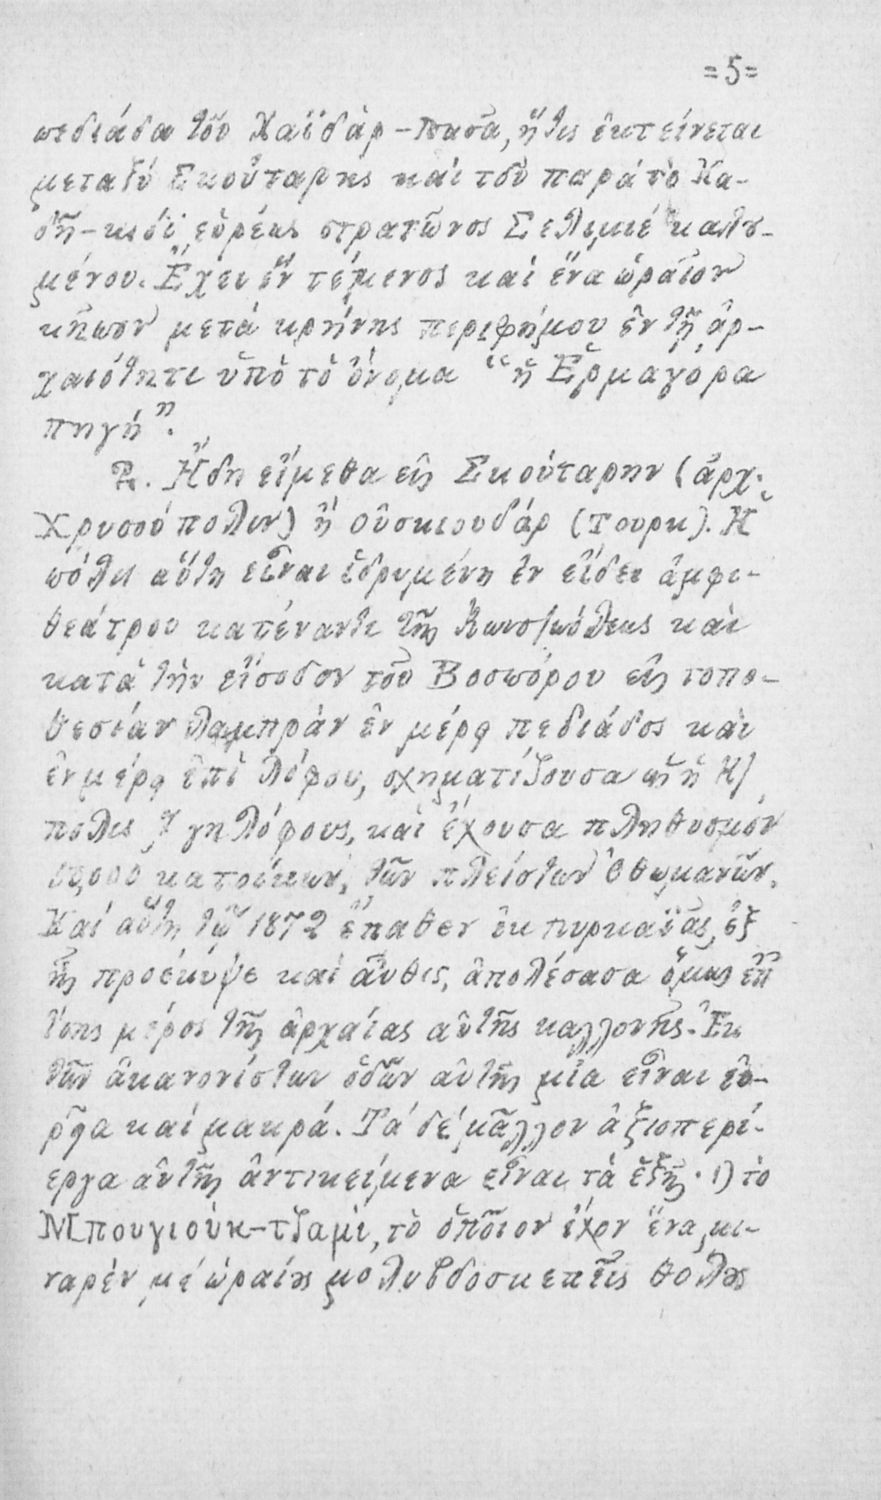 =5=
πεδιάδα τοῦ Χαϊδὰρ-πασᾶ, ἥτις ἐκτείνεται
μεταξύ Σκούταρης καὶ τοῦ παρά τὸ Κα-
δῆ-κιόϊ εὐρέως στρατῶνος Σελιμιέ καλου-
μένου. Ἔχει ἕν τέμενος καὶ ἕνα ὡραῖον
κῆπον μετά κρήνης περιφήμου ἐν τῇ ἀρ-
χαιότητι ὑπὸ τὸ ὄνομα "ἡ Ἑρμαγόρα
πηγή".
2. Ἤδη εἴμεθα εἰς Σκούταρην (ἀρχ.
Χρυσούπολιν) ἤ Οὐσκιουδάρ (Τουρκ). Ἡ
πόλις αὕτη εἶναι ἱδρυμένη ἐν εἴδει ἀμφι-
θεάτρου κατέναντι τῆς Κωνσ/πόλεως καὶ
κατὰ τὴν εἴσοδον τοῦ Βοσπόρου εἰς τοπο-
θεσίαν λαμπρὰν ἐν μέρῳ πεδιάδος καὶ
ἐν μέρῳ ἐπὶ λόφου, σχηματίζουσα ὡς ἡ Κ/
πολις λόφους, καὶ ἔχουσα πληθυσμόν
κατοίκων, τῶν πλείστων Ὀθωμανῶν.
Καί αὕτη τῷ 1872 ἔπαθεν ἐκ πυρκαϊᾶς, ἐξ
ἧς προέκυψε καὶ αὖθις, ἀπολέσασα ὅμως ἐπ'
ἴσης μέρος τῆς ἀρχαίας αὐτῆς καλλονῆς. Ἐκ
τῶν ἀκανονίστων ὁδῶν αὐτῆς μία εἶναι εὐ-
ρεῖα καί μακρά. Τά δέ μᾶλλον ἀξιοπερί-
εργα αὐτῆς ἀντικείμενα εἶναι τὰ ἑξῆς· 1) τὸ
Μπουγιούκ-τζαμί, τὸ ὁποῖον ἔχον ἕνα μι-
ναρέν μέ ὡραίης μολυβδοσκεπεῖς θόλους